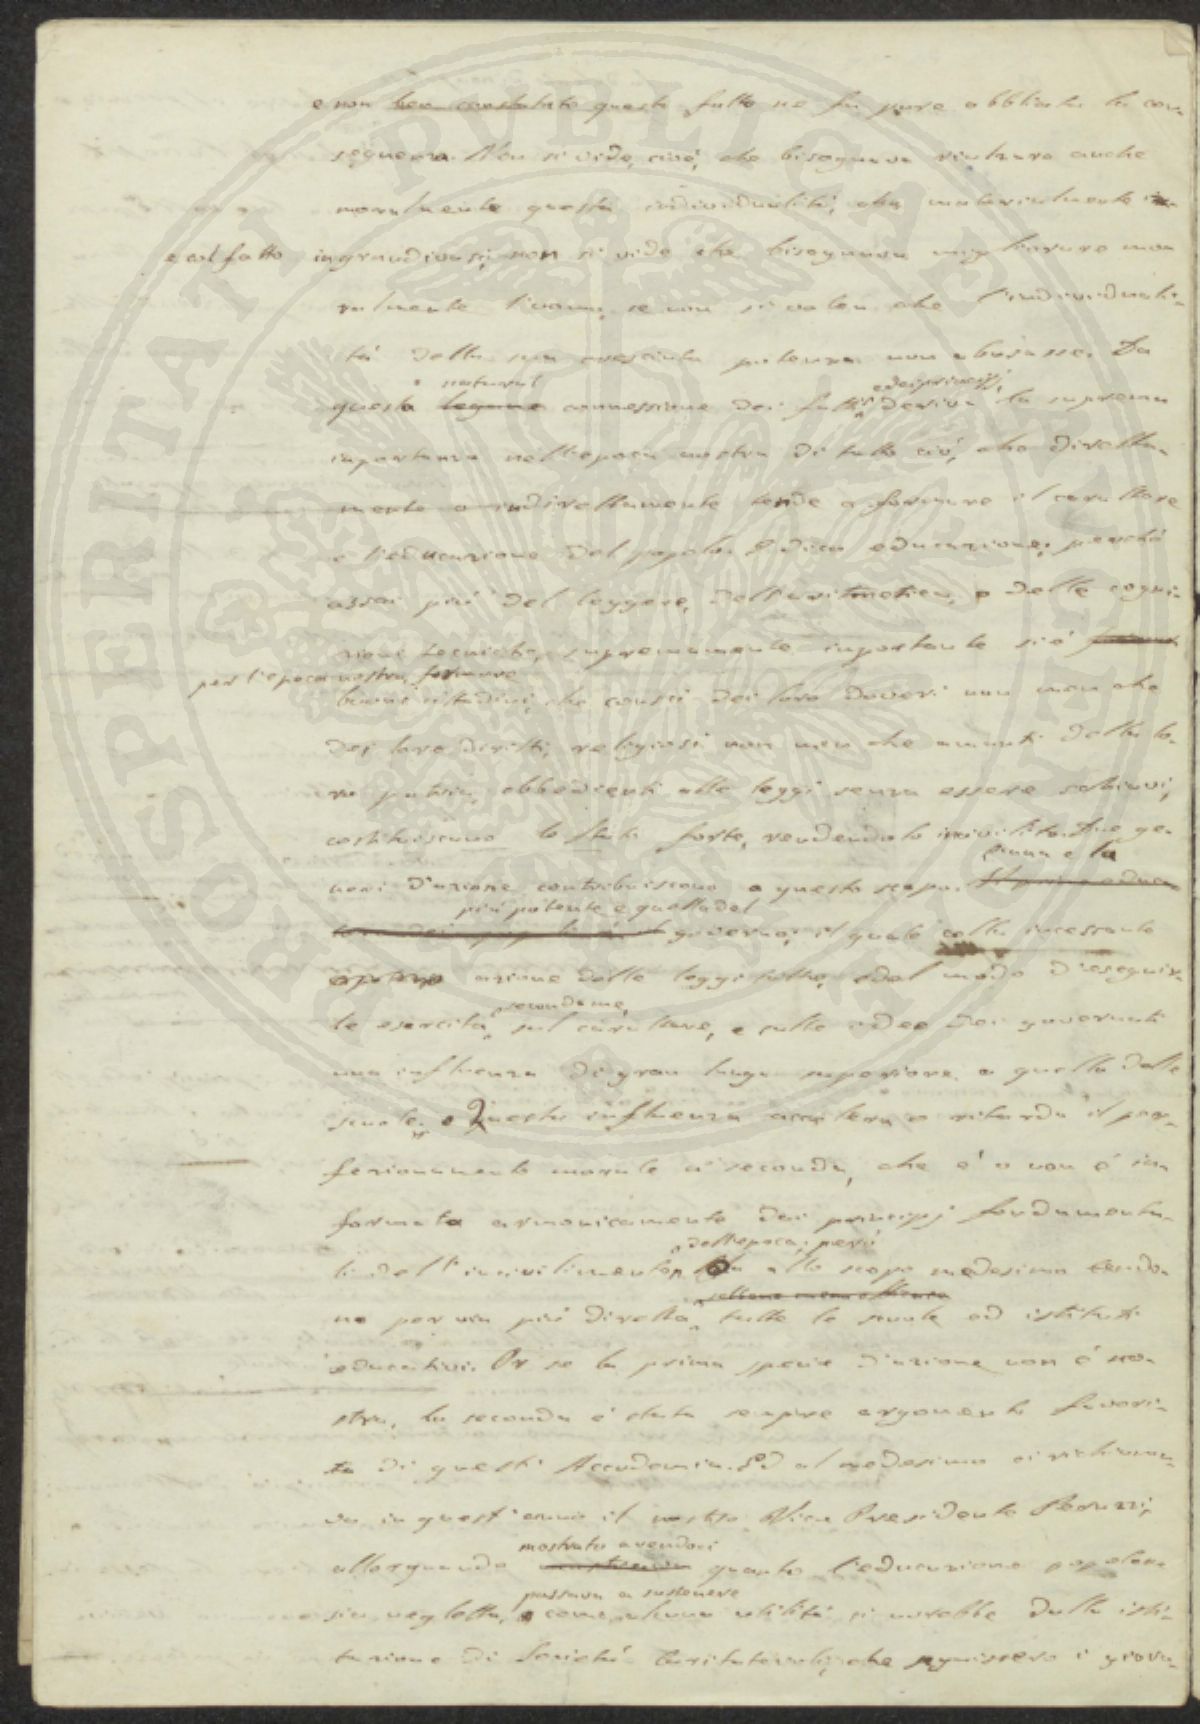 e non ben constatato questo fatto ne fu pure obbliata la con-
seguenza. Non si vide, cioè, che bisognava rialzare anche
moralmente questa individualità, che materialmente
e col fatto ingrandivasi, non si vide che bisognava migliorare mo-
ralmente l'uomo, se non si volea che l'individuali-
tà della sua cresciuta potenza non abusasse. Da
natural e dei principj,
questa legame connessione dei fatti deriva la suprema
importanza nell'epoca nostra di tutto ciò, che diretta-
mente o indirettamente tende a formare il carattere
e l'educazione del popolo. E dico educazione, perché
assai più del leggere, dell'aritmetica, e delle cogni-
zioni tecniche, supremamente importante si è
per l'epoca nostra formare
buoni cittadini, che consci dei loro doveri non men che
dei loro diritti, religiosi non men che amanti della lo-
ro patria, obbedienti alle leggi senza essere schiavi,
costituiscano lo Stato forte, rendendolo incivilito. Due ge-
L'una e la
neri d'azione contribuiscono a questo scopo.
più potente è quella del
governo, il quale colla incessante
azione delle leggi tutte, e del modo d'eseguir-
secondo me,
le esercita, sul carattere, e sulle idee dei governati
una influenza di gran lunga superiore a quella delle
scuole. Questa influenza accelera o ritarda il per-
fezionamento morale a seconda, che è o non è in-
formata armonicamente dai principj fondamenta-
dell'epoca; però
li dell'incivilimento. allo scopo medesimo tendo-
no per via più diretta, tutte le scuole ed istituti
educativi. Or se la prima specie d'azione non è no-
stra, la seconda è stata sempre argomento favori-
to di questa Accademia. Ed al medesimo ci richiama-
va in quest'anno il nostro Vice Presidente Peruzzi,
mostrato avendoci
allorquando quanto l'educazione popolare
passava a sostenere
sia negletta, come utilità si avrebbe dalla isti-
tuzione di Società Caritatevoli, che seguissero i giova-